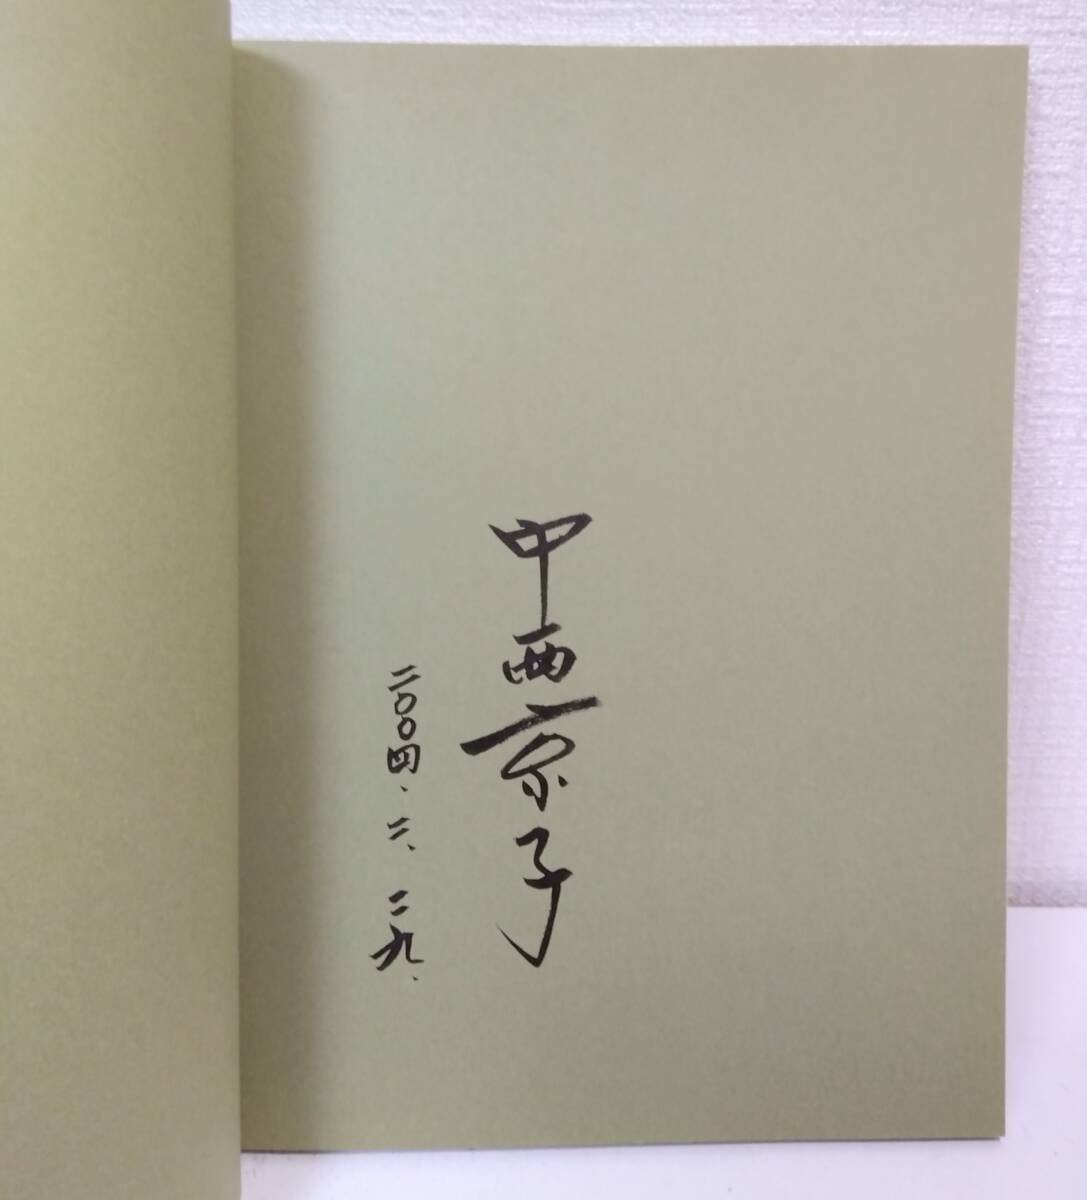 中西京子
二〇〇四、二、二九、